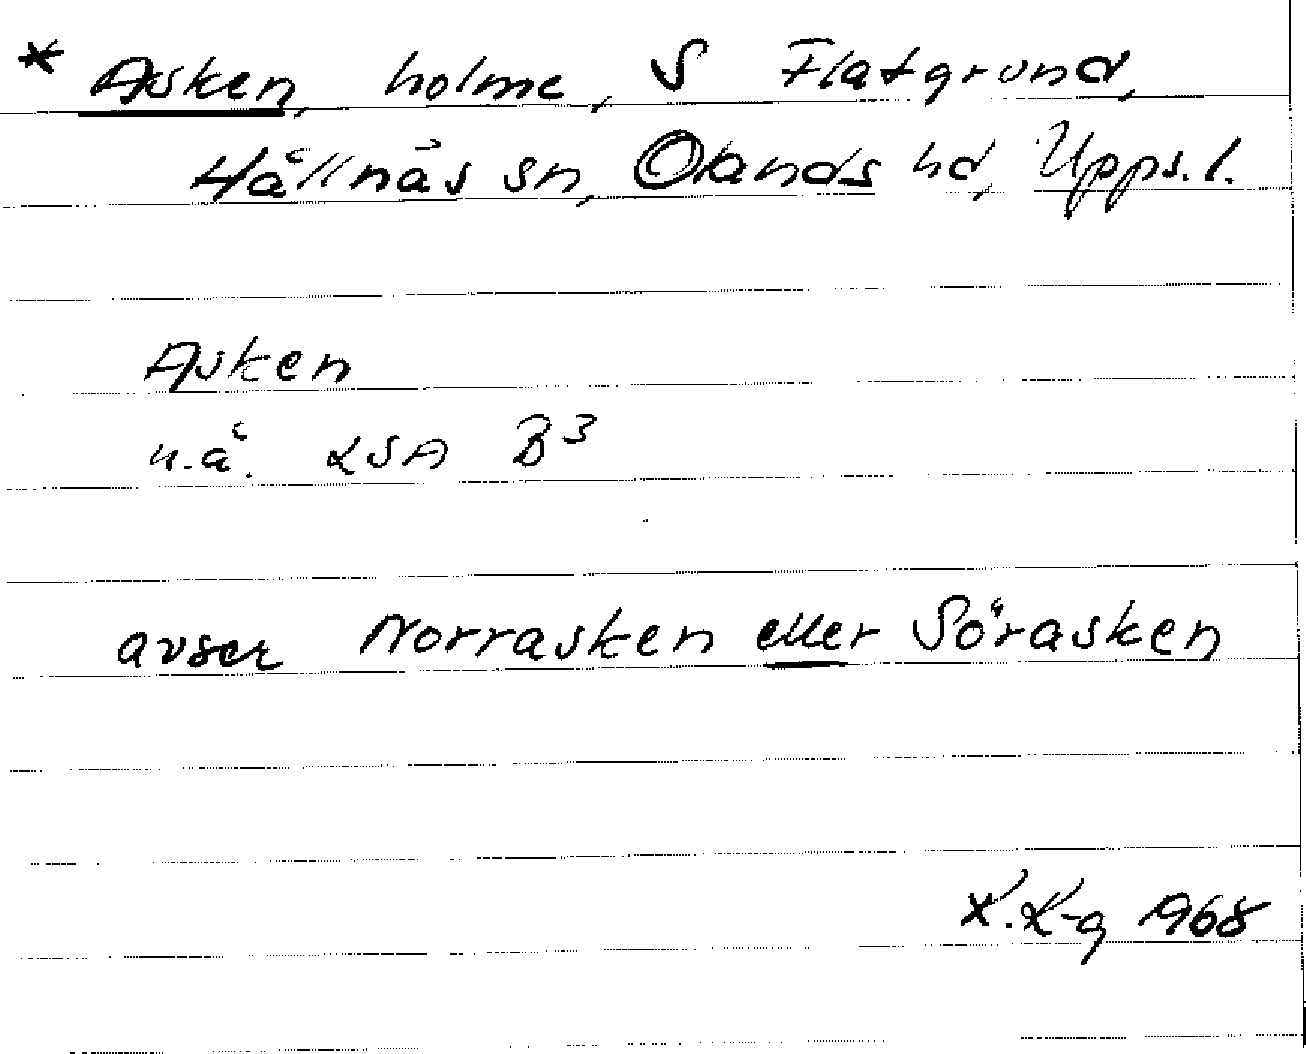 * Asken, holme, S Flatgrund,
Hållnäs sn, Olands hd, Upps. l.
Asken
u.å. LSA B3
avser Norrasken eller Sörasken
1968